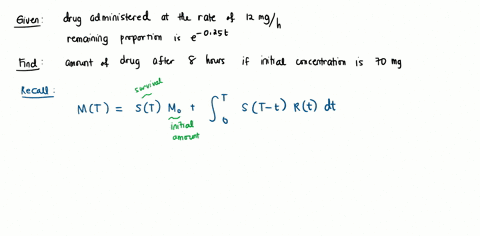 Given: drug administered at the rate of 12 mg/h
remaining proportion is e^-0.25t
Find: amount of drug after 8 hours if initial concentration is 70 mg
Recall:
survival
M(T) = S(T) M₀ + ∫₀ᵀ S(T-t) R(t) dt
initial
amount